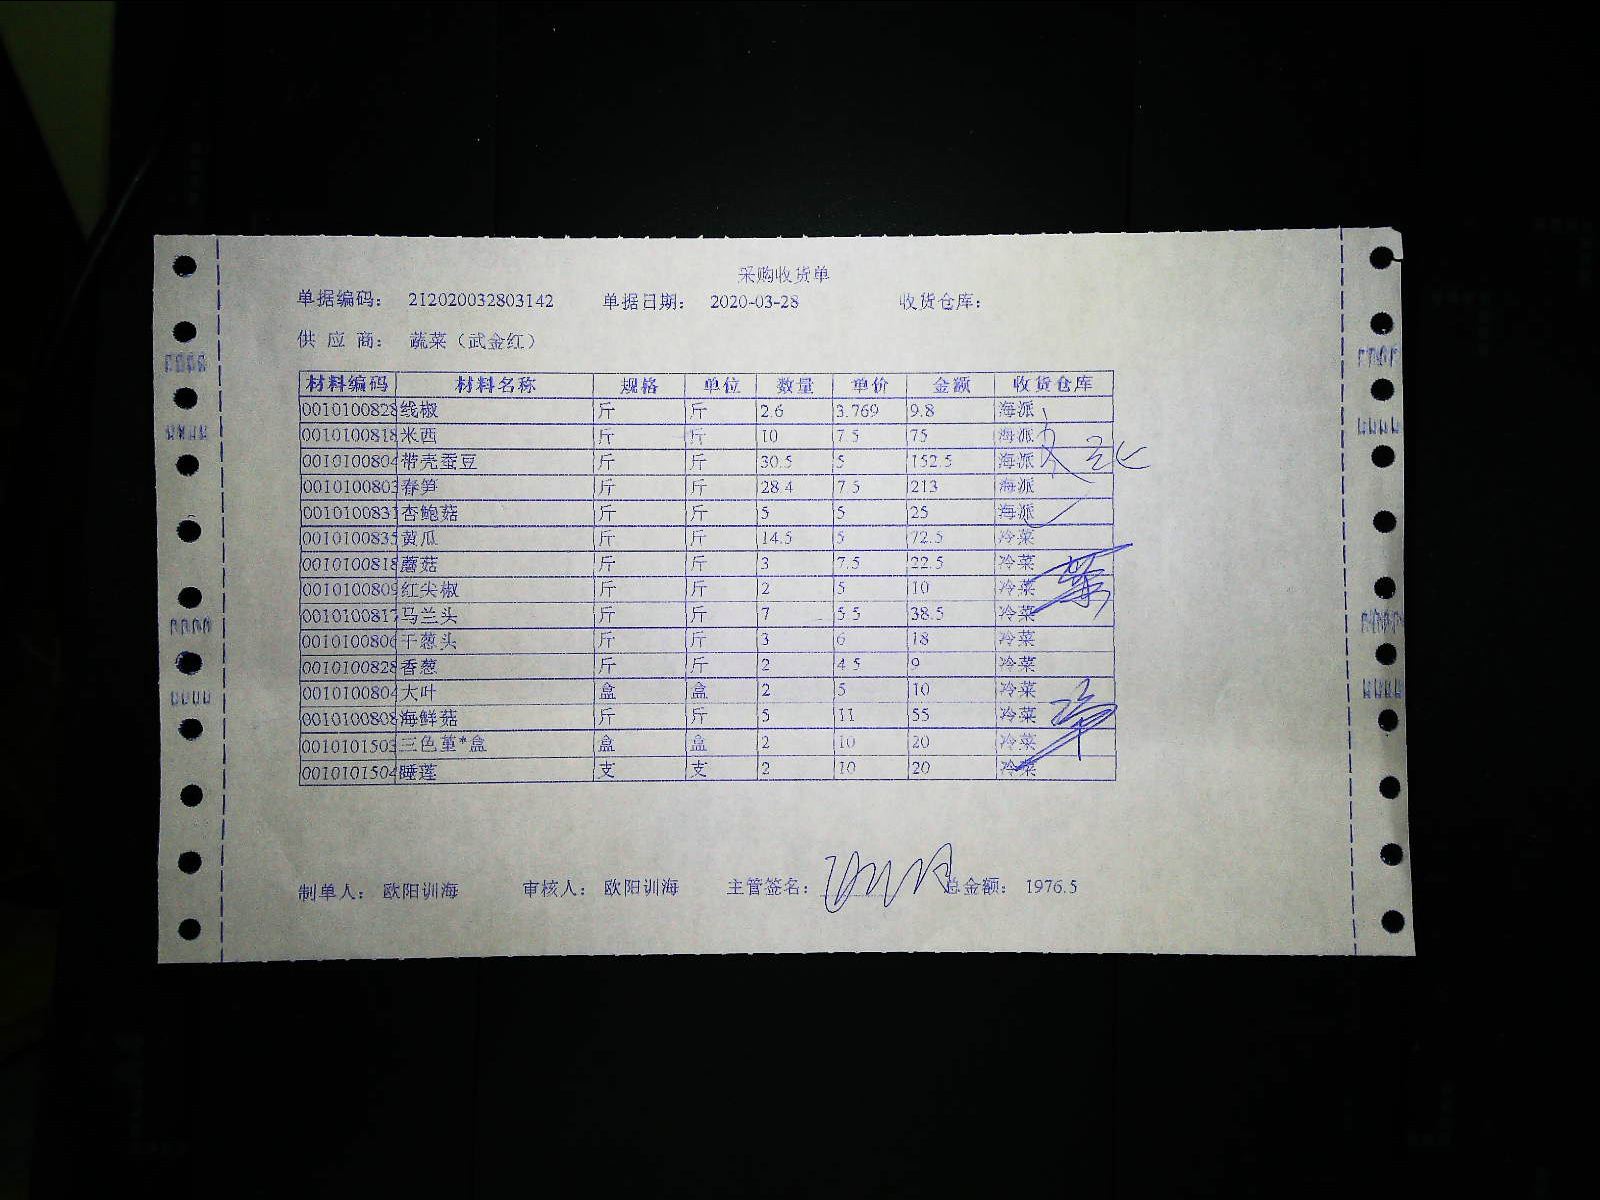 采购收货单
单据编码： 212020032803142 单据日期： 2020-03-28 收货仓库：
供 应 商： 蔬菜（武金红）
材料编码 材料名称 规格 单位 数量 单价 金额 收货仓库
0010100828 线椒 斤 斤 2.6 3.769 9.8 海派
0010100818 米西 斤 斤 10 7.5 75 海派
0010100804 带壳蚕豆 斤 斤 30.5 5 152.5 海派
0010100803 春笋 斤 斤 28.4 7.5 213 海派
0010100831 杏鲍菇 斤 斤 5 5 25 海派
0010100835 黄瓜 斤 斤 14.5 5 72.5 冷菜
0010100818 蘑菇 斤 斤 3 7.5 22.5 冷菜
0010100809 红尖椒 斤 斤 2 5 10 冷菜
0010100817 马兰头 斤 斤 7 5.5 38.5 冷菜
0010100806 干葱头 斤 斤 3 6 18 冷菜
0010100828 香葱 斤 斤 2 4.5 9 冷菜
0010100804 大叶 盒 盒 2 5 10 冷菜
0010100808 海鲜菇 斤 斤 5 11 55 冷菜
0010101503 三色堇*盒 盒 盒 2 10 20 冷菜
0010101504 睡莲 支 支 2 10 20 冷菜
制单人： 欧阳训海 审核人： 欧阳训海 主管签名： 总金额： 1976.5